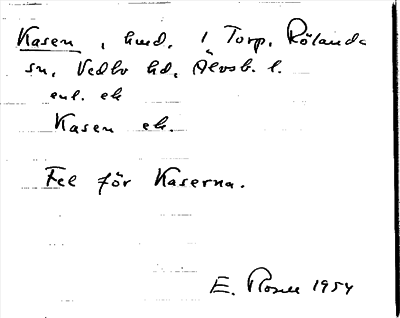 Kasen, hmd. i Torp, Rölanda
sn, Vedbo hd, Älvsb. l.
enl. ek
Kasen ek.
Fel för Kaserna.
E. Rosell 1954